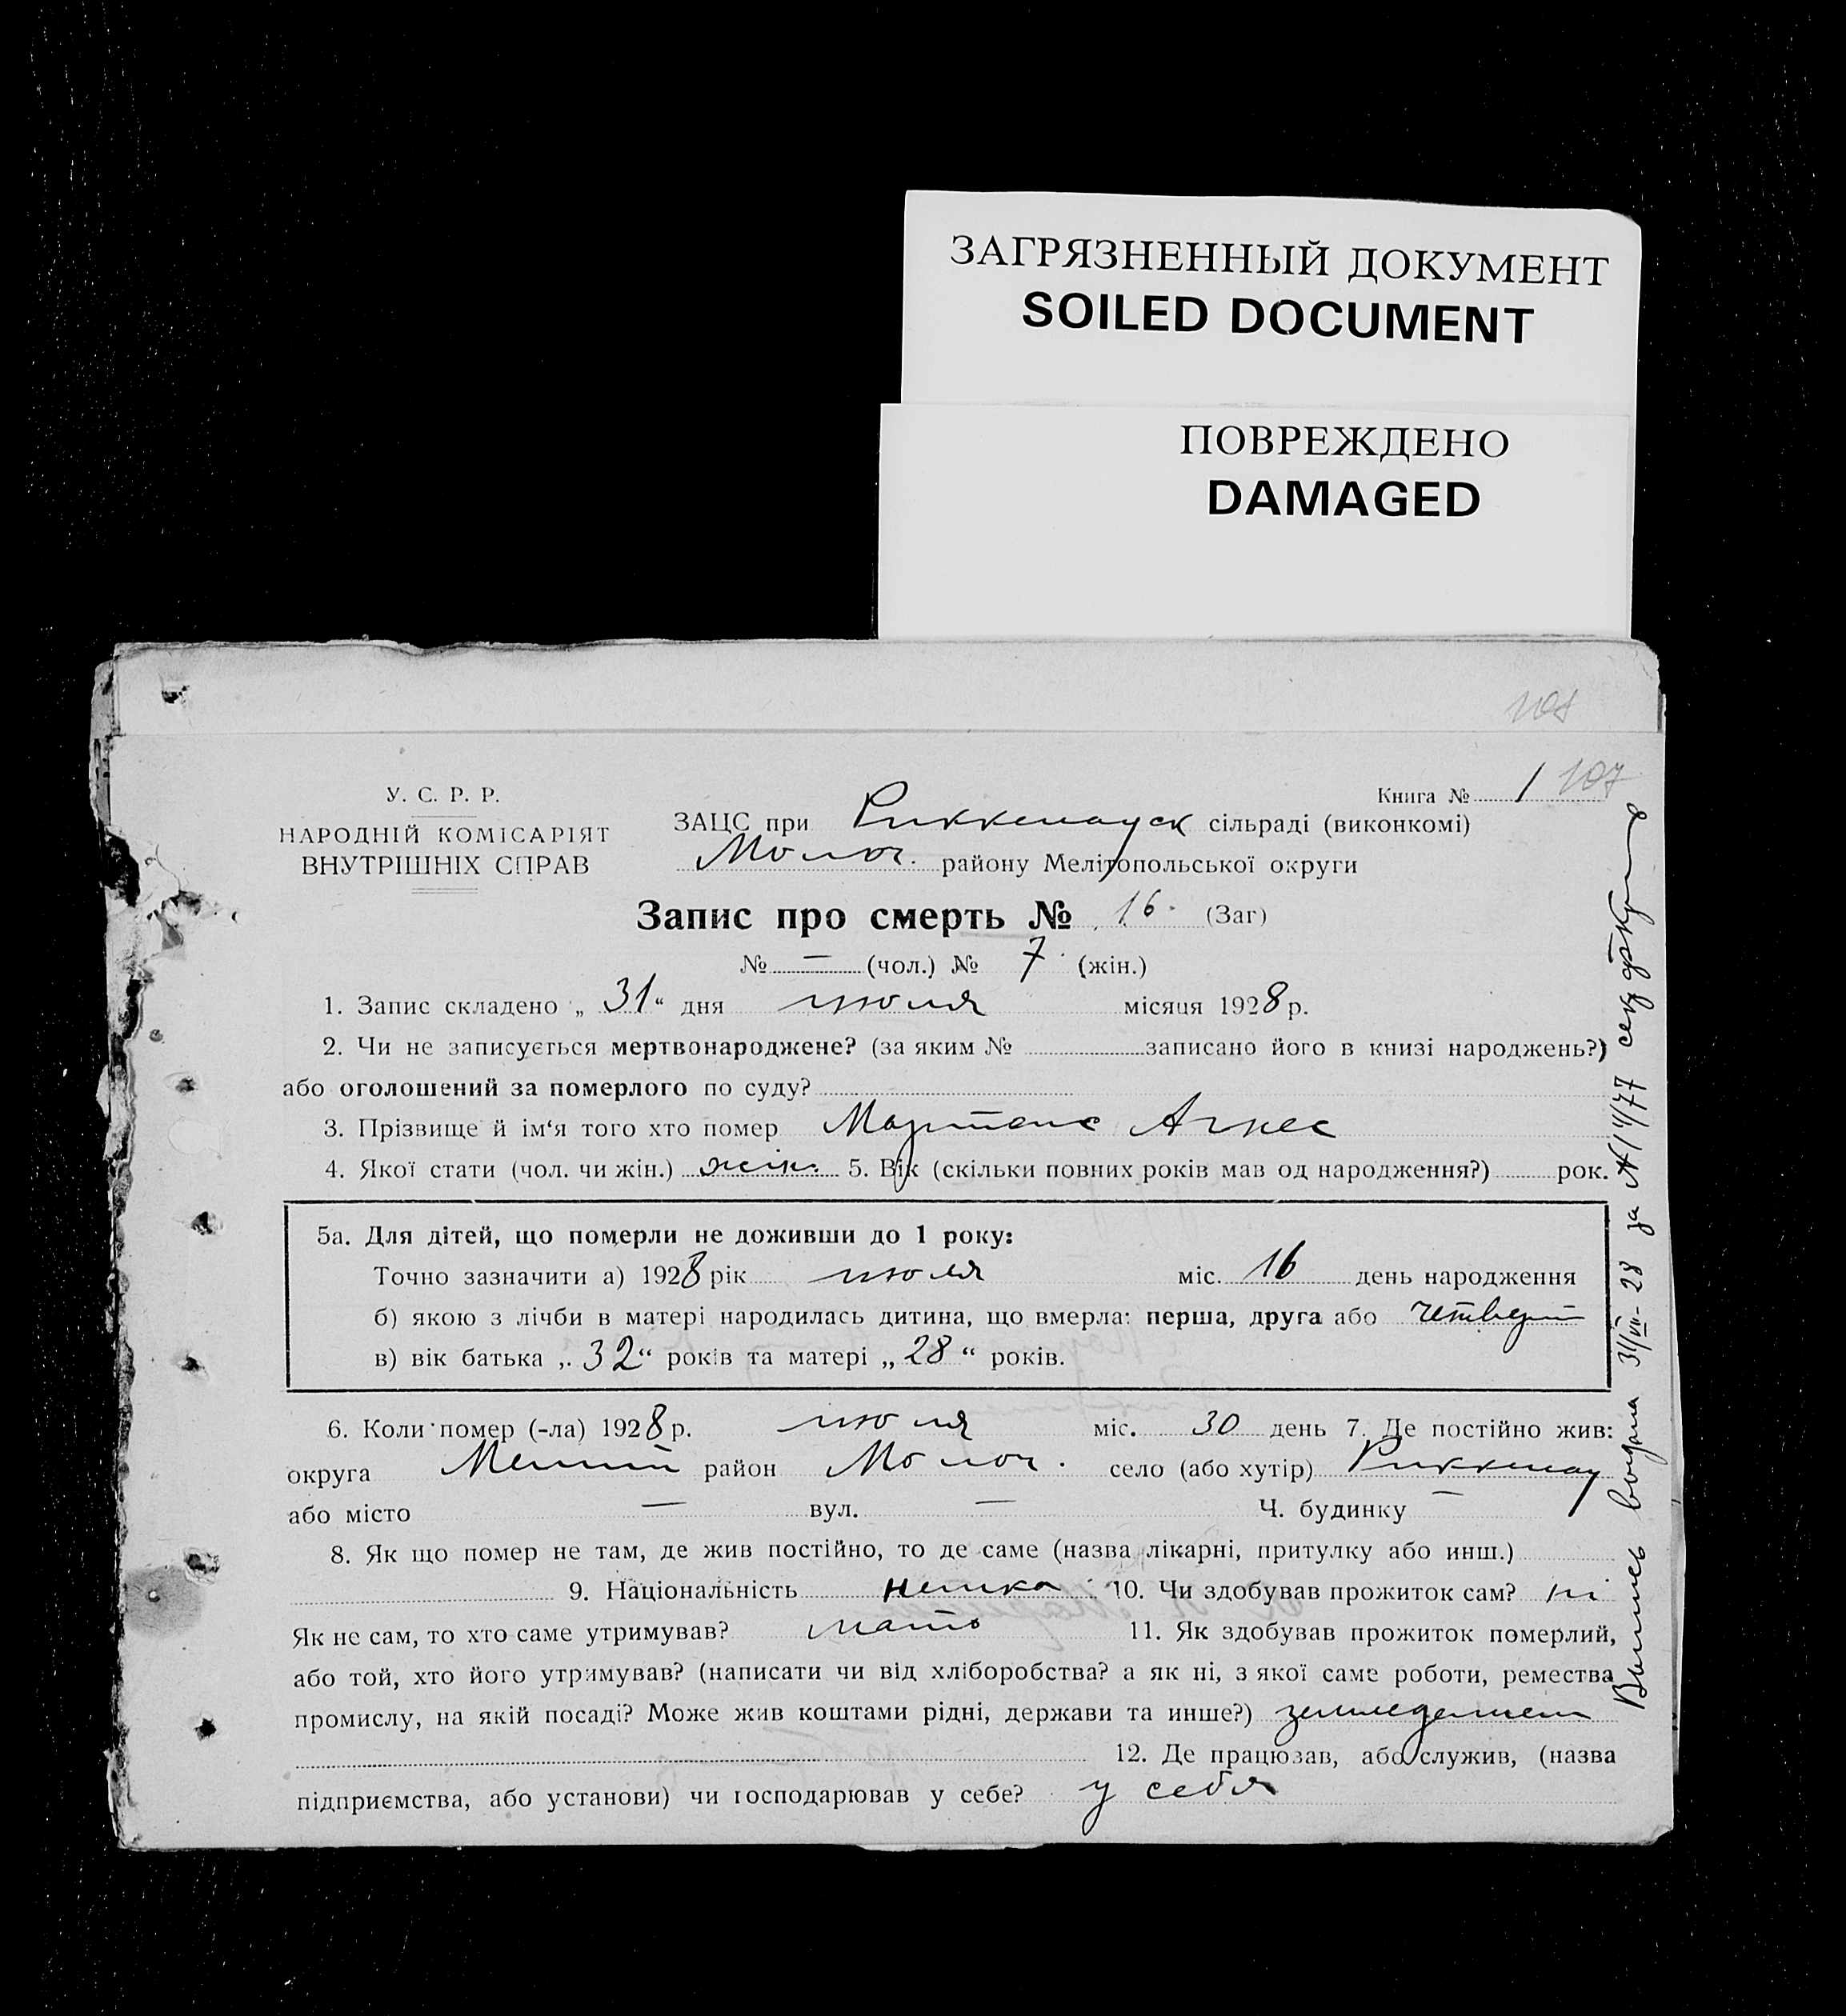 ЗАГРЯЗНЕННЫЙ ДОКУМЕНТ
SOILED DOCUMENT
ПОВРЕЖДЕНО
DAMAGED
У. С. Р. Р.
НАРОДНІЙ КОМІСАРІЯТ
ВНУТРІШНІХ СПРАВ
Книга № 1 107
ЗАЦС при Риккенауск сільраді (виконкомі)
Молоч. району Мелітопольської округи
Запис про смерть № 16. (Заг)
№ — (чол.) № 7 (жін.)
1. Запис складено „ 31 “ дня июля місяця 1928 р.
2. Чи не записується мертвонароджене? (за яким № записано його в книзі народжень?)
або оголошений за померлого по суду?
3. Прізвище й ім‘я того хто помер Мартенс Агнес
4. Якої стати (чол. чи жін.) жін. 5. Вік (скільки повних років мав од народження?) рок.
5а. Для дітей, що померли не доживши до 1 року:
Точно зазначити а) 1928 рік июля міс. 16 день народження
б) якою з лічби в матері народилась дитина, що вмерла: перша, друга або
в) вік батька „ 32 “ років та матері „ 28 “ років.
6. Коли помер (-ла) 1928 р. июля міс. 30 день 7. Де постійно жив:
округа Мелит район Молоч. село (або хутір) Риккенау
або місто — вул. — Ч. будинку —
8. Як що помер не там, де жив постійно, то де саме (назва лікарні, притулку або инш.)
9. Національність немка 10. Чи здобував прожиток сам? ні
Як не сам, то хто саме утримував? мать 11. Як здобував прожиток померлий,
або той, хто його утримував? (написати чи від хліборобства? а як ні, з якої саме роботи, ремества
промислу, на якій посаді? Може жив коштами рідні, держави та инше?) земледелием
12. Де працював, або служив, (назва
підприємства, або установи) чи господарював у себе? у себя
Выпись выдна 31/VII-28 за №